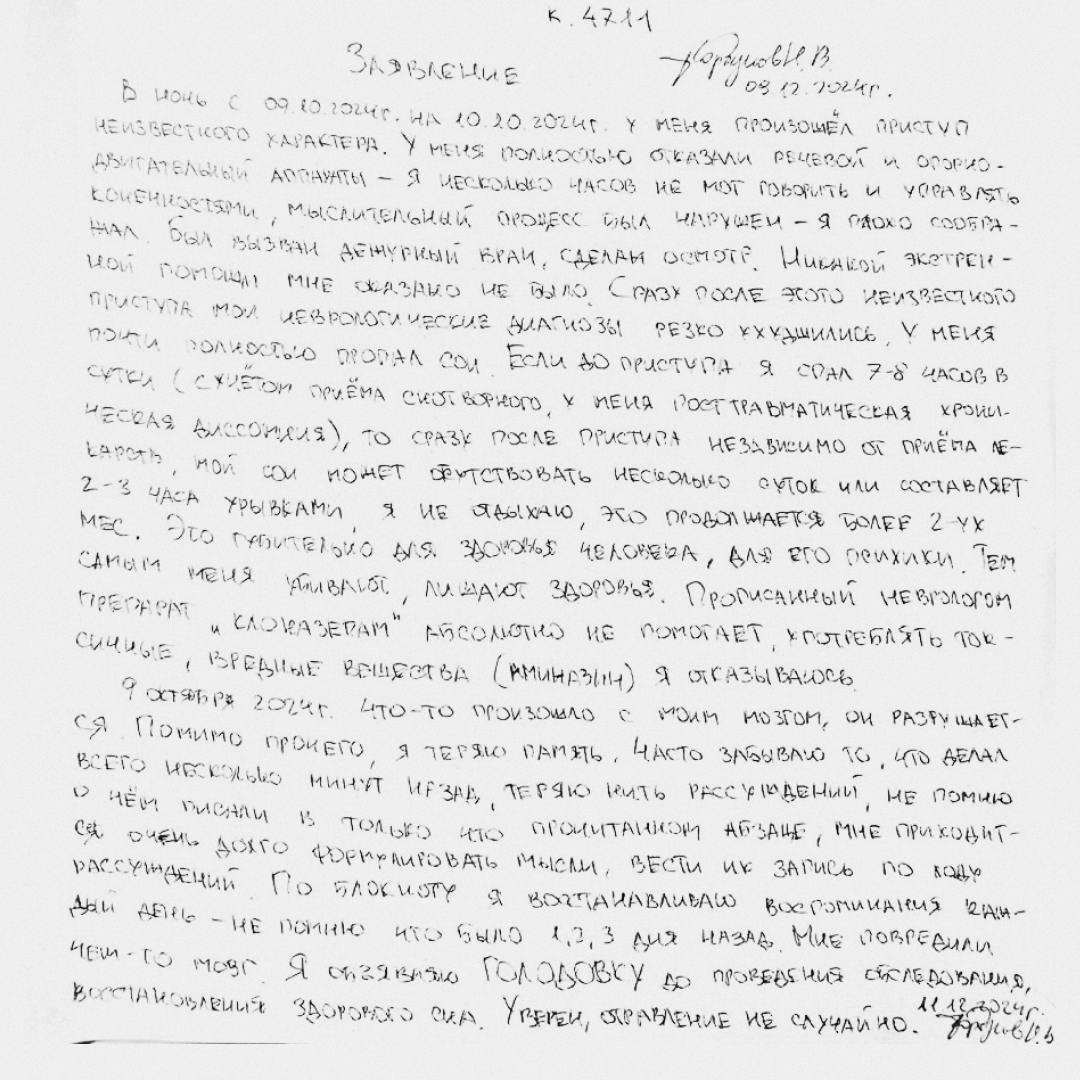 к. 4711
Заявление
Горбунов И. В.
09.12.2024г.
В ночь с 09.10.2024г. на 10.10.2024г. у меня произошёл приступ
неизвестного характера. У меня полностью отказали речевой и опорно-
двигательный аппараты – я несколько часов не мог говорить и управлять
конечностями, мыслительный процесс был нарушен – я плохо сообра-
жал. Был вызван дежурный врач, сделан осмотр. Никакой экстрен-
ной помощи мне оказано не было. Сразу после этого неизвестного
приступа мои неврологические диагнозы резко ухудшились. У меня
почти полностью пропал сон. Если до приступа я спал 7-8 часов в
сутки (с учётом приёма снотворного, у меня посттравматическая хрони-
ческая диссомния), то сразу после приступа независимо от приёма ле-
карств, мой сон может отсутствовать несколько суток или составляет
2-3 часа урывками, я не отдыхаю, это продолжается более 2-ух
мес. Это губительно для здоровья человека, для его психики. Тем
самым меня убивают, лишают здоровья. Прописанный неврологом
препарат „Клоназепам" абсолютно не помогает, употреблять ток-
сичные, вредные вещества (аминазин) я отказываюсь.
9 октября 2024г. что-то произошло с моим мозгом, он разрушает-
ся. Помимо прочего, я теряю память. Часто забываю то, что делал
всего несколько минут назад, теряю нить рассуждений, не помню
о чём писали в только что прочитанном абзаце, мне приходит-
ся очень долго формулировать мысли, вести их запись по ходу
рассуждений. По блокноту я восстанавливаю воспоминания каж-
дый день – не помню что было 1, 2, 3 дня назад. Мне повредили
чем-то мозг. Я объявляю ГОЛОДОВКУ до проведения обследования,
восстановления здорового сна. Уверен, отравление не случайно.
11.12.2024г.